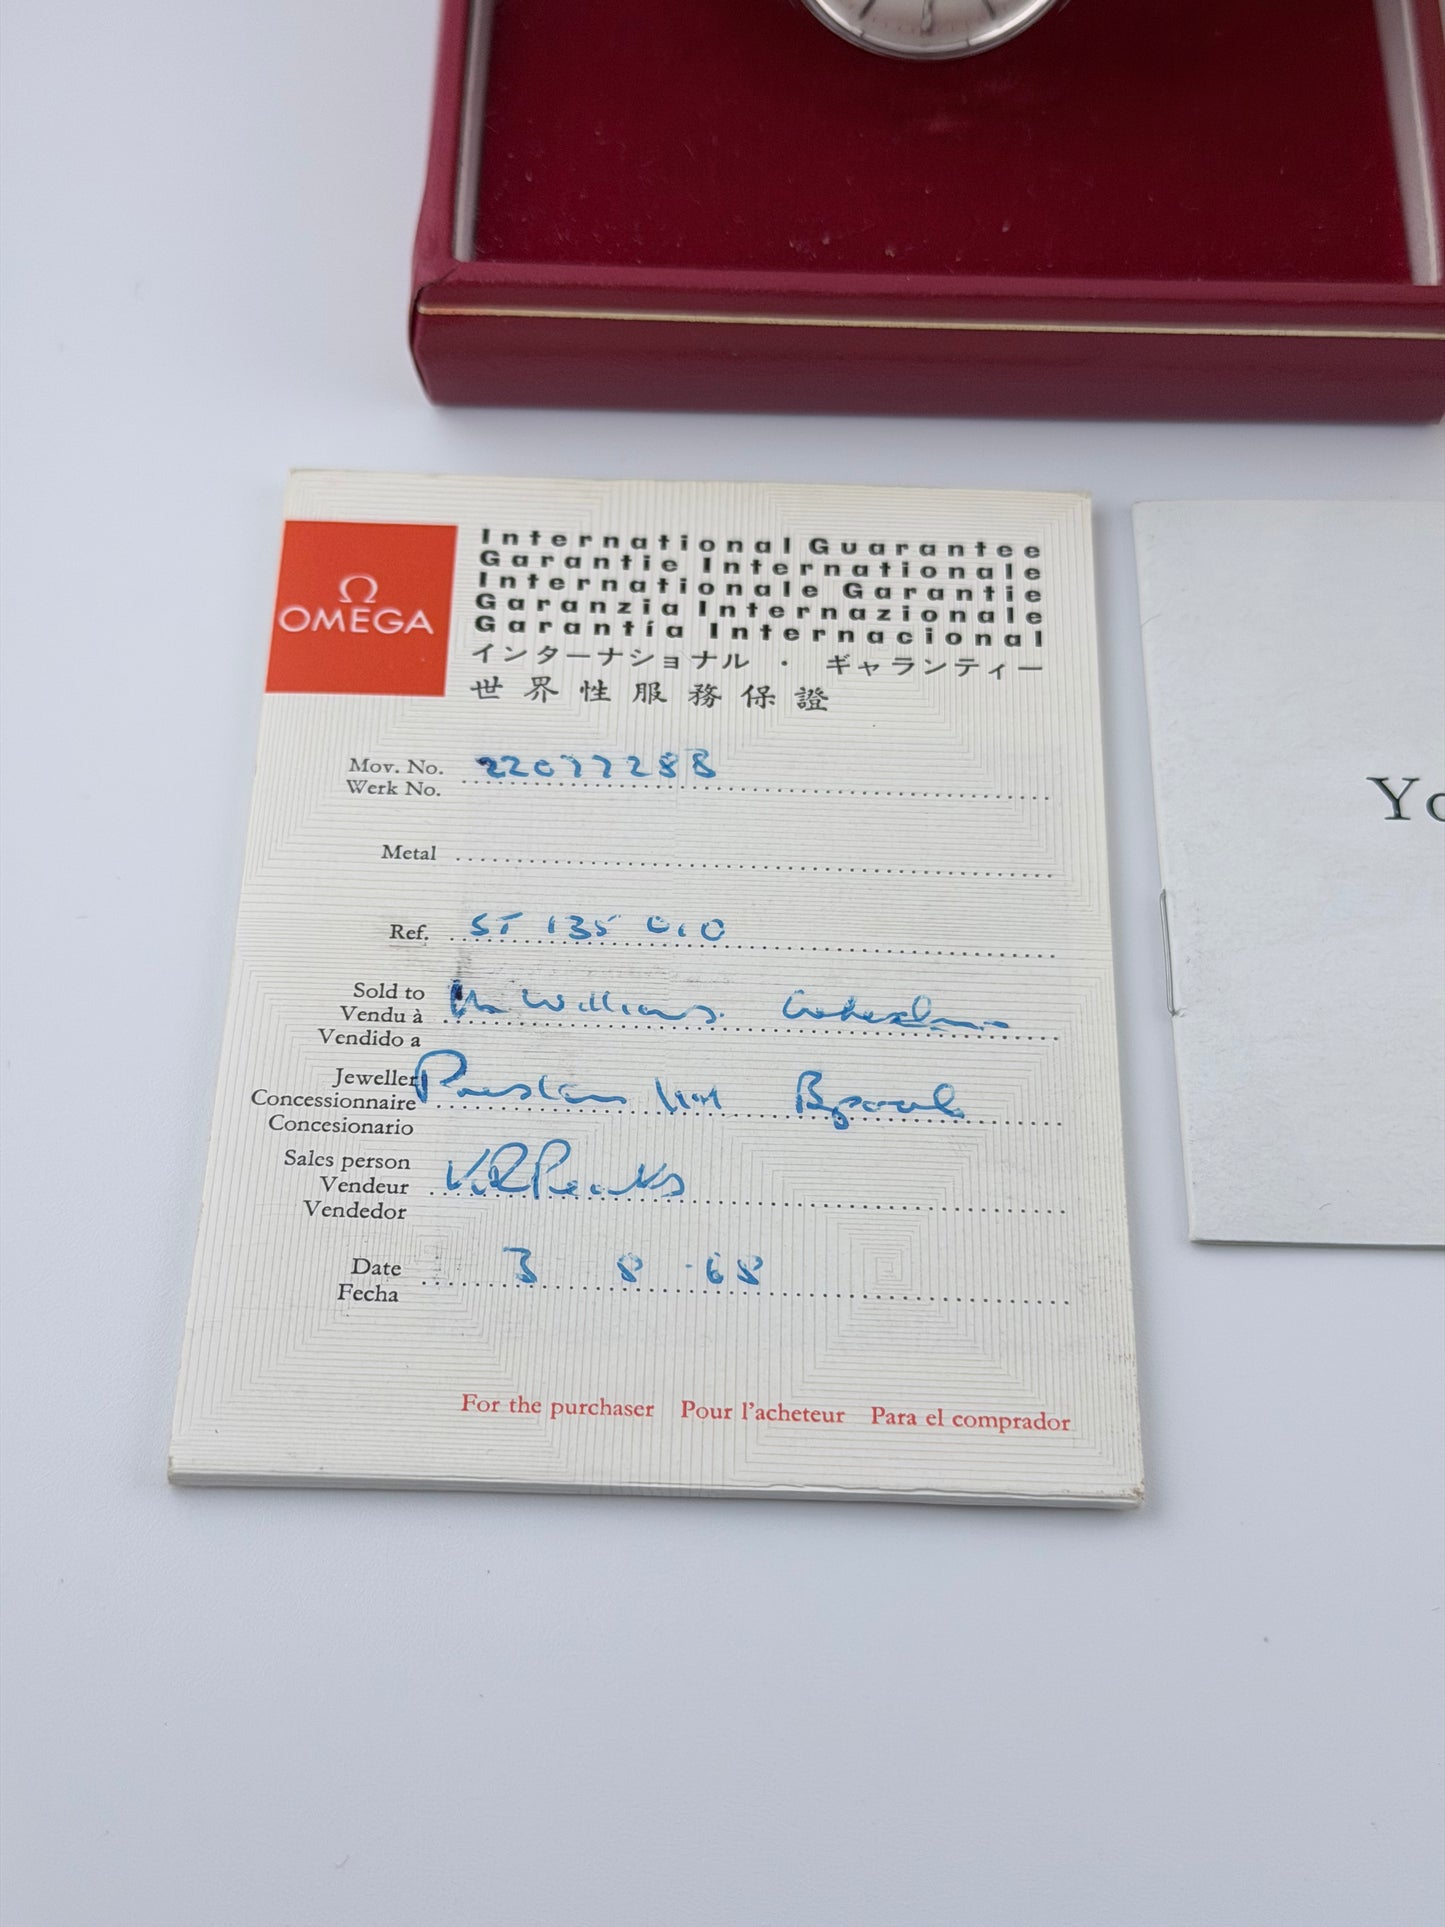 Ω
OMEGA
International Guarantee
Garantie Internationale
Internationale Garantie
Garanzia Internazionale
Garantía Internacional
インターナショナル ・ ギャランティー
世界性服務保證
Mov. No. 22077288
Werk No.
Metal
Ref. ST 135 010
Sold to Williams
Vendu à
Vendido a
Jeweller
Concessionnaire
Concesionario
Sales person
Vendeur
Vendedor
Date 3 8 · 68
Fecha
For the purchaser Pour l'acheteur Para el comprador